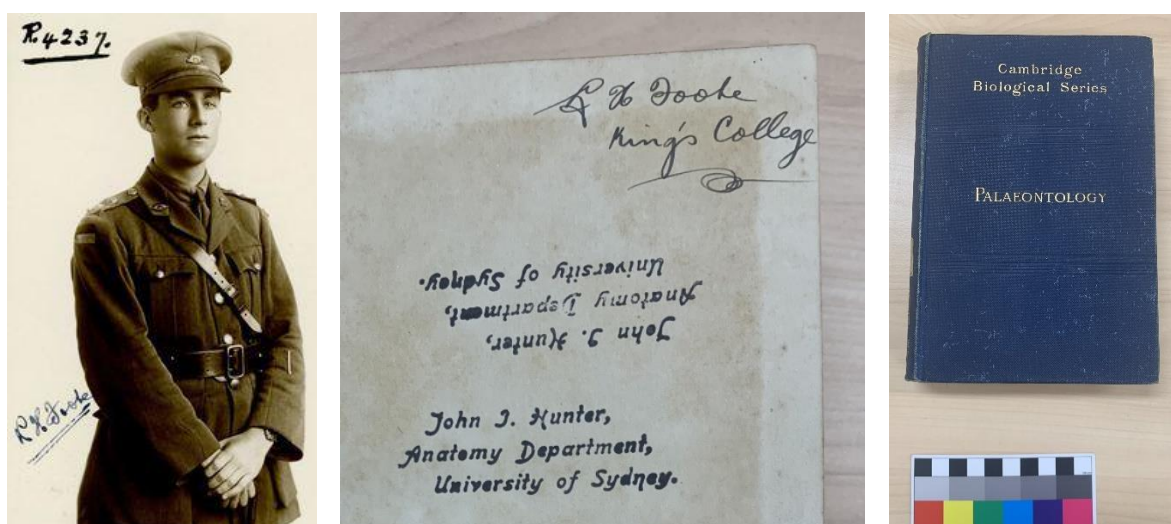 R.4237.
R H Foote
R H Foote
King's College
John I. Hunter,
Anatomy Department,
University of Sydney.
John I. Hunter,
Anatomy Department,
University of Sydney.
Cambridge
Biological Series
PALAEONTOLOGY